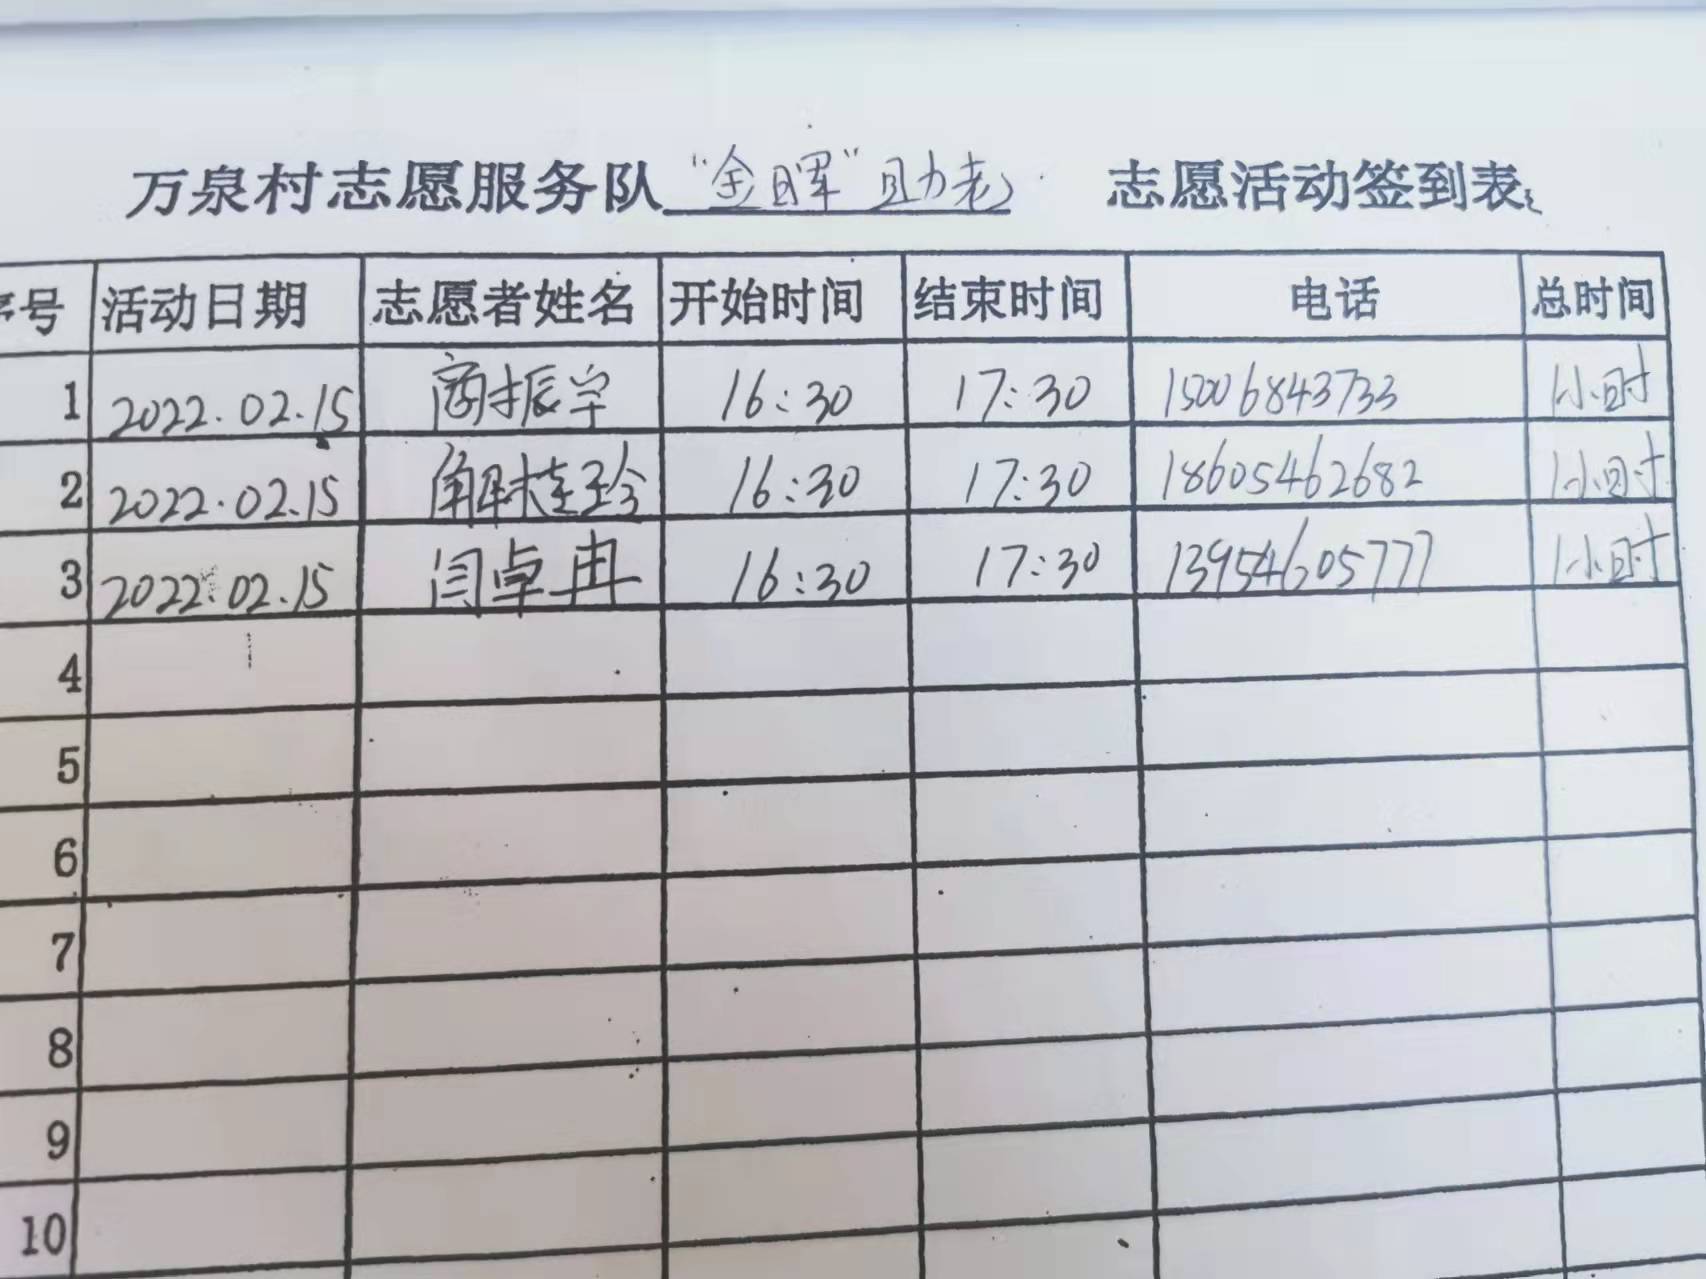 万泉村志愿服务队“金晖”助老 志愿活动签到表
序号 活动日期 志愿者姓名 开始时间 结束时间 电话 总时间
1 2022.02.15 商振宇 16:30 17:30 15006843733 1小时
2 2022.02.15 解桂玲 16:30 17:30 18605462682 1小时
3 2022.02.15 闫卓冉 16:30 17:30 13954605777 1小时
4
5
6
7
8
9
10